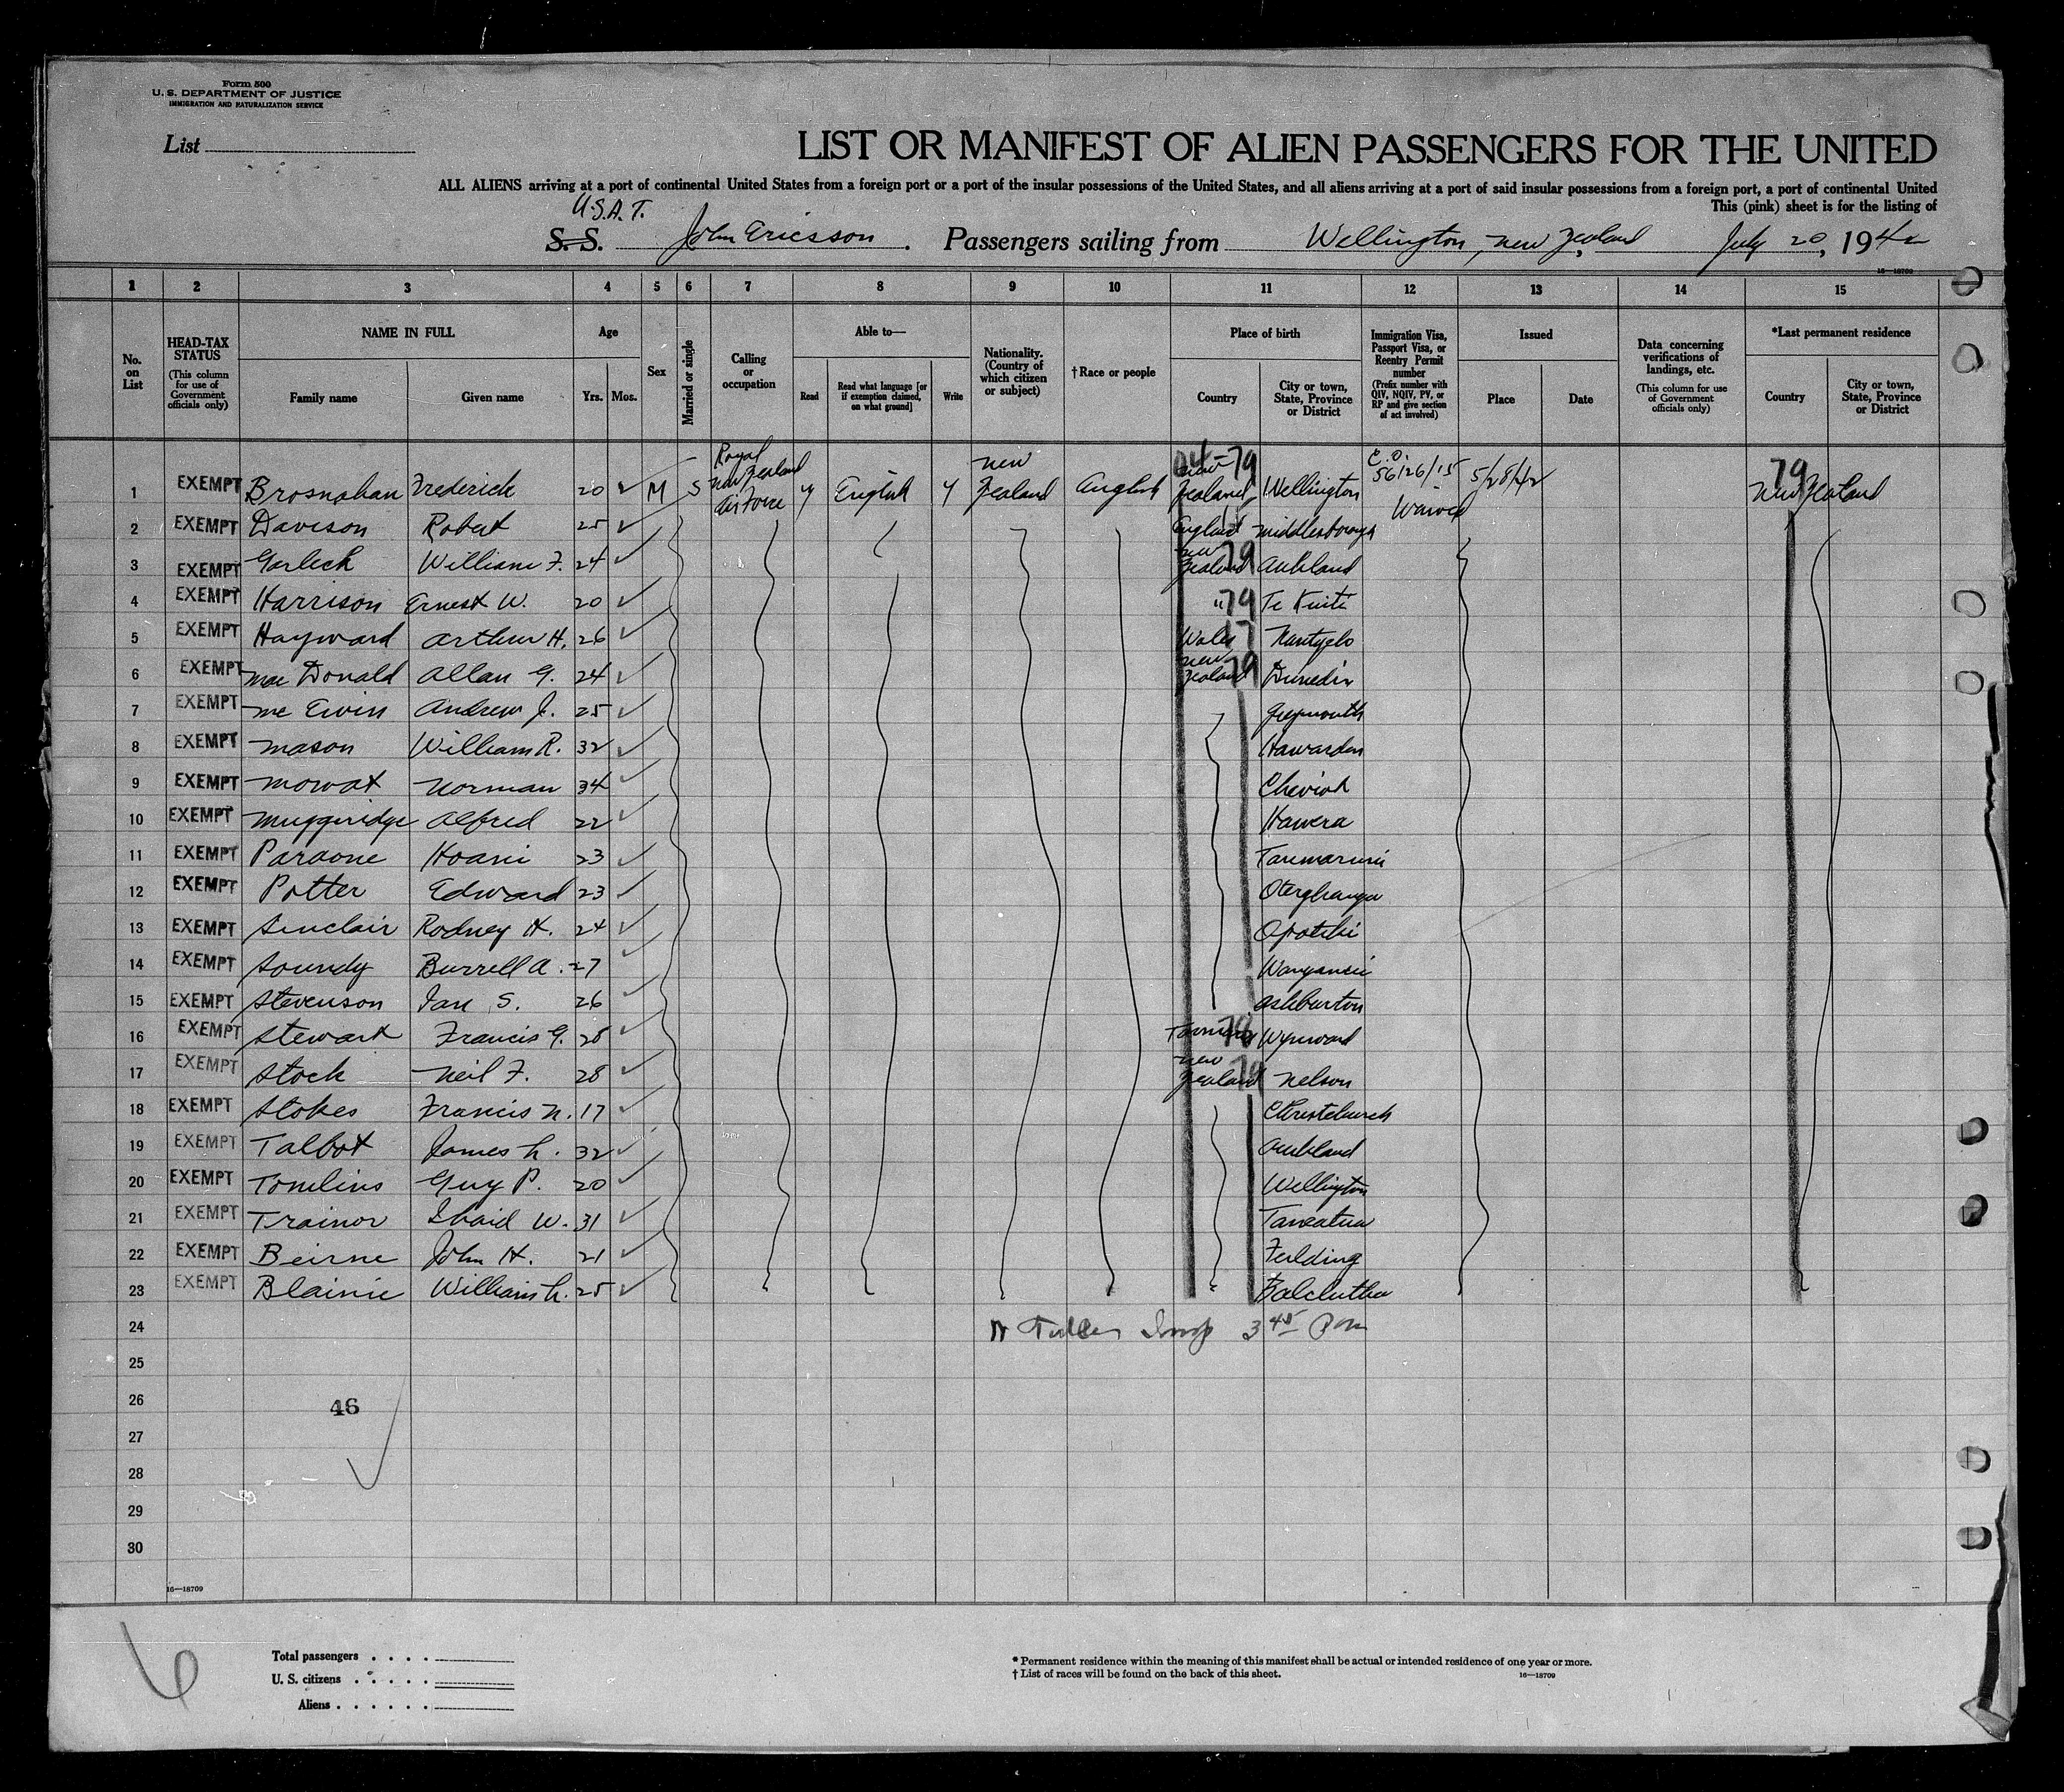 Form 500
U. S. DEPARTMENT OF JUSTICE
IMMIGRATION AND NATURALIZATION SERVICE
List
LIST OR MANIFEST OF ALIEN PASSENGERS FOR THE UNITED
ALL ALIENS arriving at a port of continental United States from a foreign port or a port of the insular possessions of the United States, and all aliens arriving at a port of said insular possessions from a foreign port, a port of continental United
This (pink) sheet is for the listing of
U.S.A.T.
S. S. John Ericsson. Passengers sailing from Wellington, New Zealand July 20, 1942
16—18709
1 2 3 4 5 6 7 8 9 10 11 12 13 14 15
No. on List
HEAD-TAX STATUS (This column for use of Government officials only)
NAME IN FULL Family name Given name
Age Yrs. Mos.
Sex
Married or single
Calling or occupation
Able to— Read Read what language [or if exemption claimed, on what ground] Write
Nationality. (Country of which citizen or subject)
† Race or people
Place of birth Country City or town, State, Province or District
Immigration Visa, Passport Visa, or Reentry Permit number (Prefix number with QIV, NQIV, PV, or RP and give section of act involved)
Issued Place Date
Data concerning verifications of landings, etc. (This column for use of Government officials only)
*Last permanent residence Country City or town, State, Province or District
1 EXEMPT Brosnahan Frederick 20 M S Royal New Zealand Air Force y English y New Zealand English New Zealand 79 Wellington 56126/15 Waived 5/28/42 79 New Zealand
2 EXEMPT Davison Robert 25 England Middlesborough
3 EXEMPT William F. 24 New Zealand 79 Aukland
4 EXEMPT Harrison Ernest W. 20 " 79 Te Kuiti
5 EXEMPT Hayward Arthur H. 26 Wales Nantyglo
6 EXEMPT Mac Donald Allan G. 24 New Zealand 79 Dunedin
7 EXEMPT Andrew J. 25 Greymouth
8 EXEMPT Mason William R. 32 Hawarden
9 EXEMPT Mowat Norman 34 Cheviot
10 EXEMPT Muggeridge Alfred 22 Hawera
11 EXEMPT Paraone Hoani 23 Taumarunui
12 EXEMPT Potter Edward 23
13 EXEMPT Sinclair Rodney H. 24 Opotiki
14 EXEMPT Soundy Burrell A. 27 Wanganui
15 EXEMPT Stevenson Ian S. 26 Ashburton
16 EXEMPT Stewart Francis G. 28 Wynward
17 EXEMPT Stock Neil F. 28 New Zealand 79 Nelson
18 EXEMPT Stokes Francis N. 17 Christchurch
19 EXEMPT Talbot James L. 32 Aukland
20 EXEMPT Tomlins Guy P. 20 Wellington
21 EXEMPT Trainor W. 31 Taneatua
22 EXEMPT Beirne John H. 21 Feilding
23 EXEMPT Blainie William L. 25 Balclutha
24 Insp 3 45 Pm
25
26
46
27
28
29
30
16—18709
6
Total passengers
U. S. citizens
Aliens
* Permanent residence within the meaning of this manifest shall be actual or intended residence of one year or more.
† List of races will be found on the back of this sheet.
16—18709